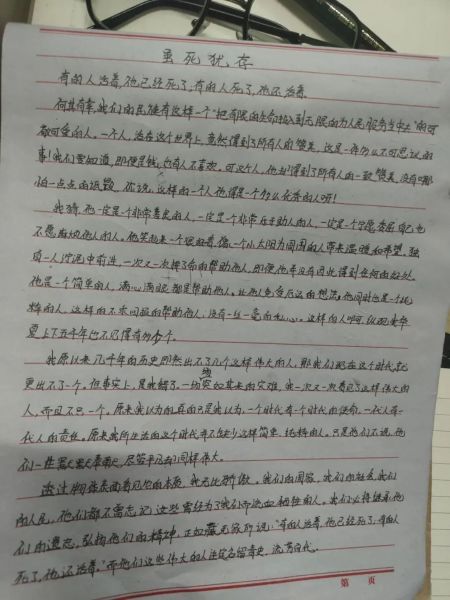 虽死犹存
有的人活着,他已经死了;有的人死了,他还活着。
何其有幸,我们的民族有这样一个"把有限的生命投入到无限的为人民服务当中去"的可
敬可爱的人。一个人,活在这个世界上,竟然得到了所有人的赞美,这是一件何么不可思议的
事!我们要知道,即便是钱,也有人不喜欢。可这个人,他却得到了所有人的一致赞美,没有哪
怕一点点的诋毁。你说,这样的一个人他得是一个何么优秀的人呀!
我猜,他一定是一个非常善良的人,一定是一个非常乐于助人的人,一定是一个宁愿委屈自己也
不愿麻烦他人的人。他笑起来一定很好看,像一个小太阳为周围的人带来温暖和希望。独
自一人泥泞中前进,一次又一次拼了命的帮助他人,即便他并没有因此得到任何的好处。
他是一个简单的人,满心满眼都是帮助他人,让他人免受厄运的想法;他同时也是一个纯
粹的人,这样的不求回报的帮助他人,没有一丝一毫的私心。这样的人啊,纵观我华
夏上下五千年也不见得有何个。
我原以来几千年的历史即然出不了几个这样伟大的人,那我们现在这个时代,就
更出不了一个,但事实上,是我错了,一场突如其来的灾难,我一次又一次看见了这样伟大的
人,而且不只一个。原来我以为的真的只是我以为,一个时代有一个时代的使命,一代人有一
代人的责任。原来我所生活的这个时代并不缺少这样简单、纯粹的人。只是他们不说,他
们一生默默奉献,尽管平凡却同样伟大。
透过物体表面看见他的本质,我无比骄傲。我们的国家,我们的社会,我们
的人民,他们都不曾忘记这些曾经为了我们而流血牺牲的人。我们必将继承他
们的遗志,弘扬他们的精神,正如臧克家所说:"有的人活着,他已经死了;有的人
死了,他还活着。"而他们这些伟大的人注定名留青史,流芳百代。
第 页